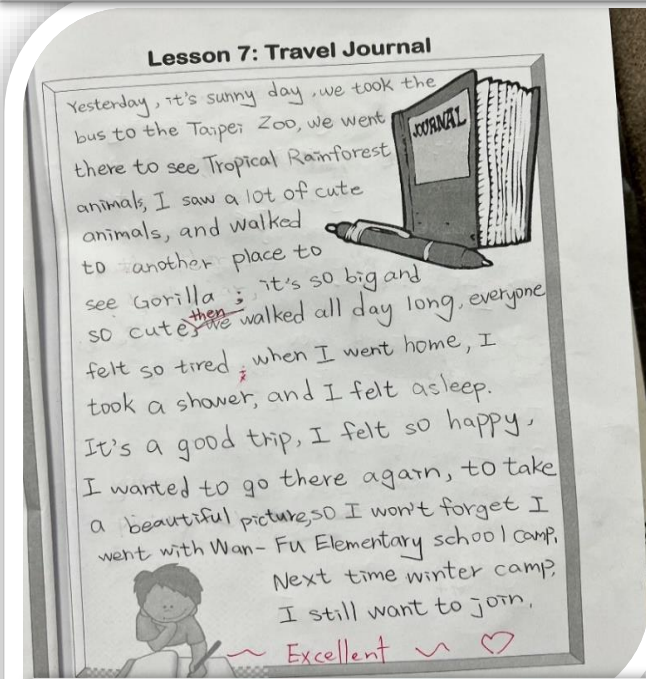 Lesson 7: Travel Journal
Yesterday, it's sunny day, we took the
JOURNAL
bus to the Taipei Zoo, we went
there to see Tropical Rainforest
animals, I saw a lot of cute
animals, and walked
to another place to
see Gorilla ; it's so big and
then
so cute, we walked all day long, everyone
felt so tired ; when I went home, I
took a shower, and I felt asleep.
It's a good trip, I felt so happy,
I wanted to go there again, to take
a beautiful picture, so I won't forget I
went with Wan-Fu Elementary school camp.
Next time winter camp,
I still want to join.
~ Excellent ~ ♡